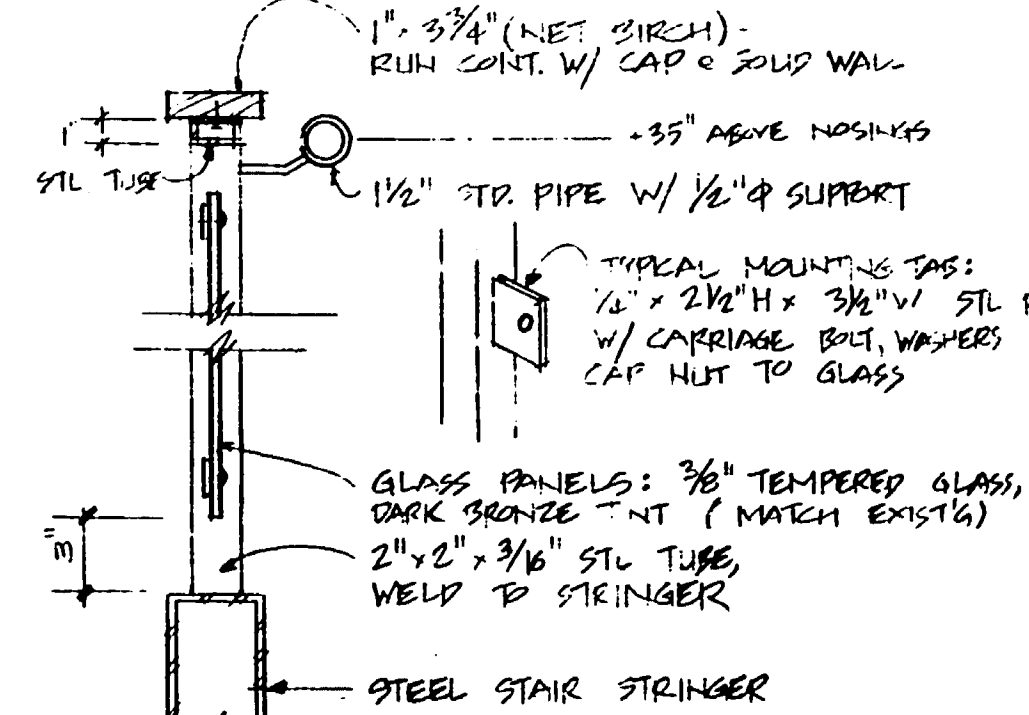 1" · 3¾" (NET BIRCH) -
RUN CONT. W/ CAP @ SOLID WAL
1"
+35" ABOVE NOSINGS
STL TUBE
1½" STD. PIPE W/ ½"Φ SUPPORT
TYPICAL MOUNTING TAB:
¼" x 2½" H x 3½" W/ STL
W/ CARRIAGE BOLT, WASHERS
CAP NUT TO GLASS
GLASS PANELS: 3/8" TEMPERED GLASS,
DARK BRONZE TINT (MATCH EXIST'G)
3"
2" x 2" x 3/16" STL TUBE,
WELD TO STRINGER
STEEL STAIR STRINGER